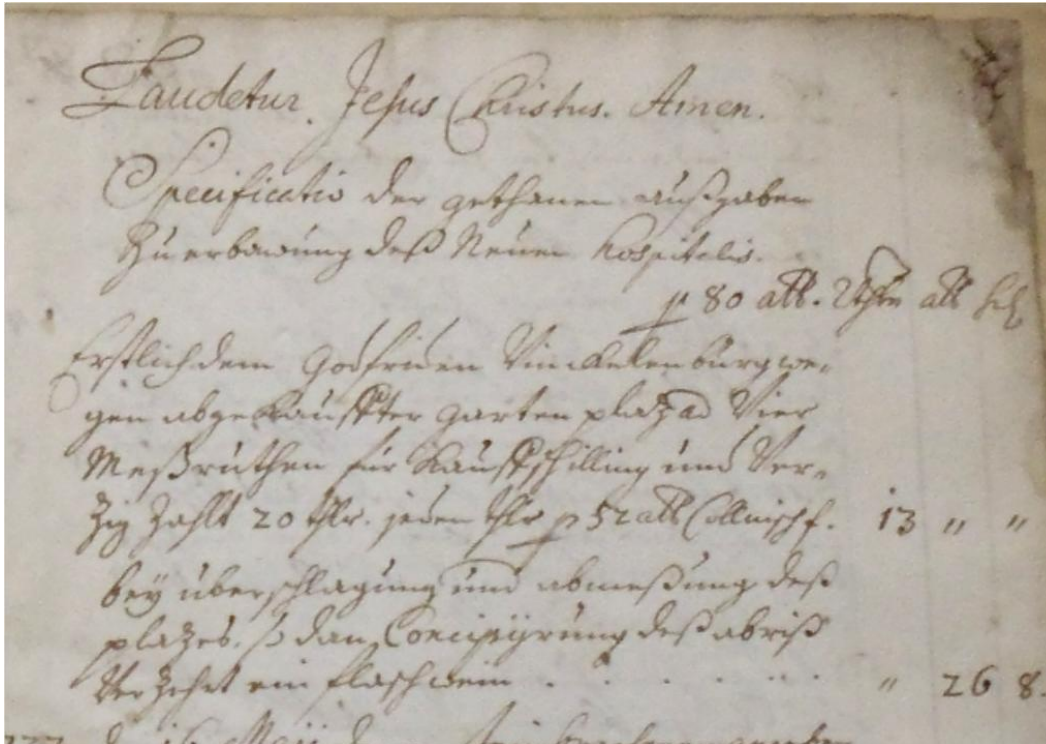 Laudetur Jesus Christus. Amen.
Specificatio der gethanen außgaben
Zu erbawung deß Neuen Hospitalis.
p 80 alb. Rthlr alb hlr
Erstlich dem Godfriden Vinckelenburg we-
gen abgekauffter garten platz ad Vier
Meßruthen für Kauffschilling und Ver-
Zig Zahlt 20 thlr. jeden thlr p 52 alb Collnisch f. 13 " "
bey überschlagung und abmeßung deß
platzes. so dan Concipyrung deß abriß
Verzehrt ein flasch wein . . . . . . " 26 8.
16 Maij